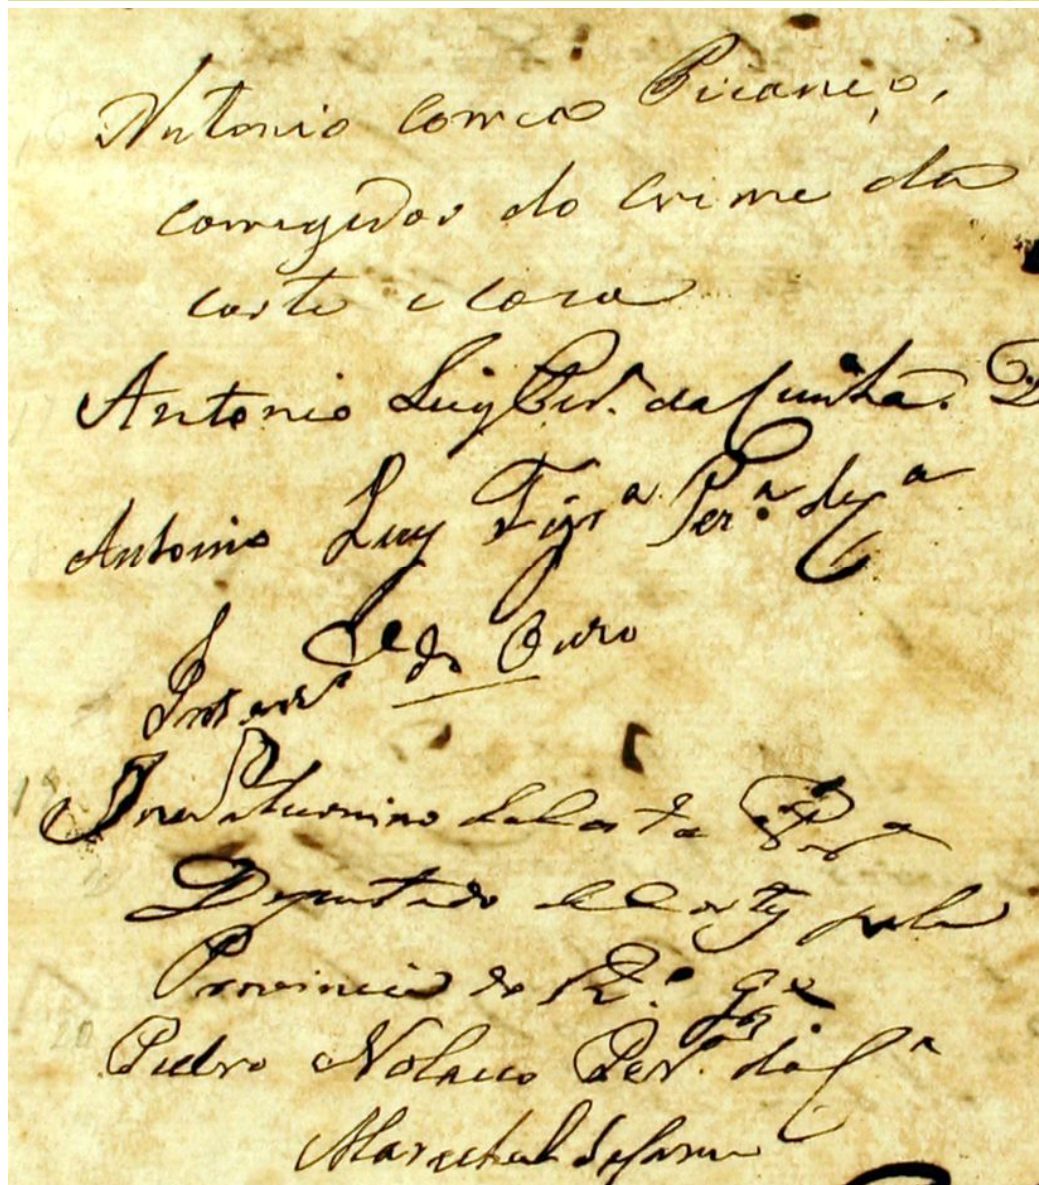 Antonio Correa Picanço,
corregedor do Crime da
Corte e Casa
Antonio Luiz Per.ª da Cunha. D
Antonio Luiz Per.ª da C.ª
do Ouro
José Saturnino da Costa Per.ª
Deputado de Cortes pela
Provincia do R.º G.de
Pedro Nolasco Per.ª da C.ª
Marechal de Campo